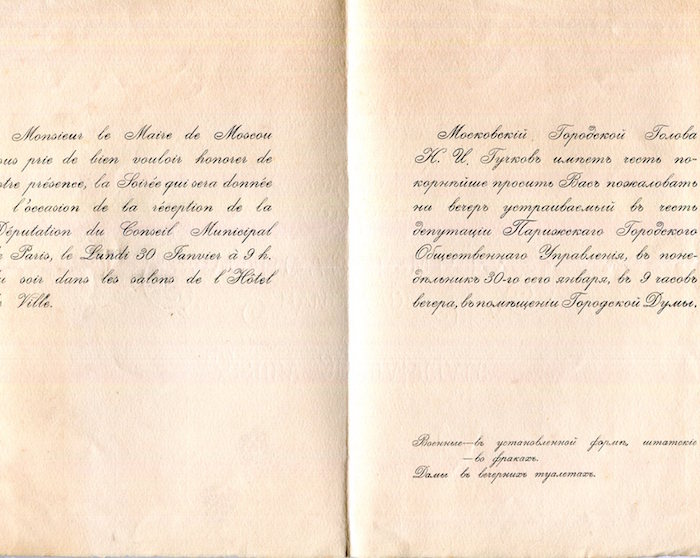 Monsieur le Maire de Moscou
ous prie de bien vouloir honorer de
otre présence, la Soirée qui sera donnée
l'occasion de la réception de la
Députation du Conseil Municipal
e Paris, le Lundi 30 Janvier à 9 h.
u soir dans les salons de l'Hôtel
e Ville.
Московскій Городской Голова
Н. И. Гучковъ имѣетъ честь по-
корнѣйше просить Васъ пожаловать
на вечеръ устраиваемый въ честь
депутаціи Парижскаго Городского
Общественнаго Управленія, въ поне-
дѣльникъ 30-го сего января, въ 9 часовъ
вечера, въ помѣщеніи Городской Думы.
Военные—въ установленной формѣ, штатскіе
—во фракахъ.
Дамы въ вечернихъ туалетахъ.